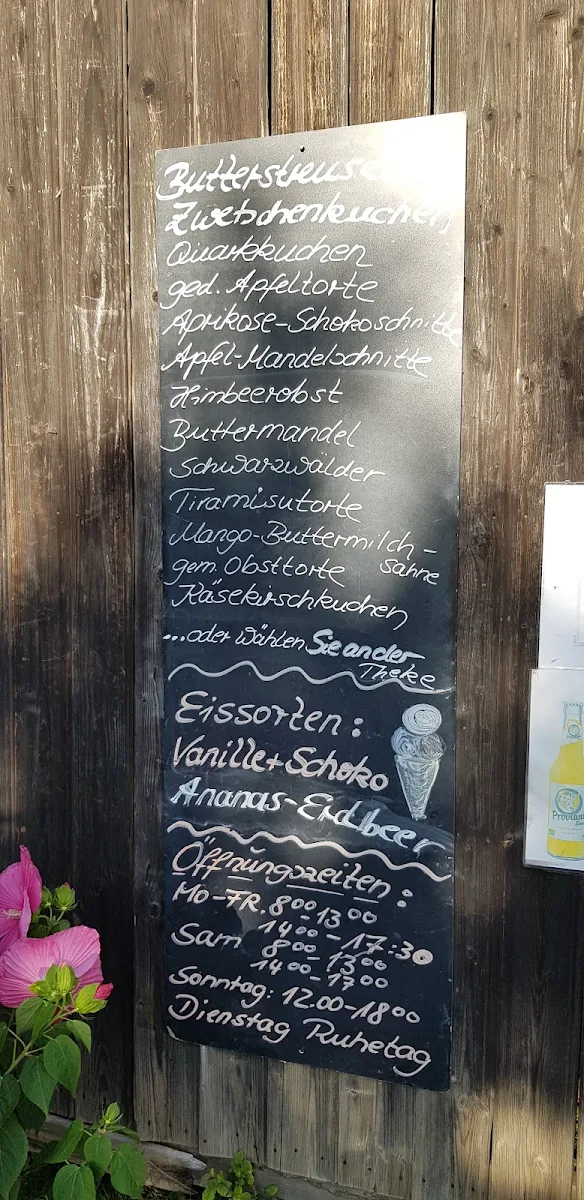 Butterstreusel
Zwetschenkuchen
Quarkkuchen
ged. Apfeltorte
Aprikose-Schokoschnitte
Apfel-Mandelschnitte
Himbeerobst
Buttermandel
Schwarzwälder
Tiramisutorte
Mango-Buttermilch-
Sahne
gem. Obsttorte
Käsekirschkuchen
...oder wählen Sie an der
Theke
Eissorten:
Vanille + Schoko
Ananas-Erdbeer
Öffnungszeiten:
MO-FR. 8⁰⁰-13⁰⁰
14⁰⁰-17:30
Sam 8⁰⁰-13⁰⁰
14⁰⁰-17⁰⁰
Sonntag: 12.00-18⁰⁰
Dienstag Ruhetag